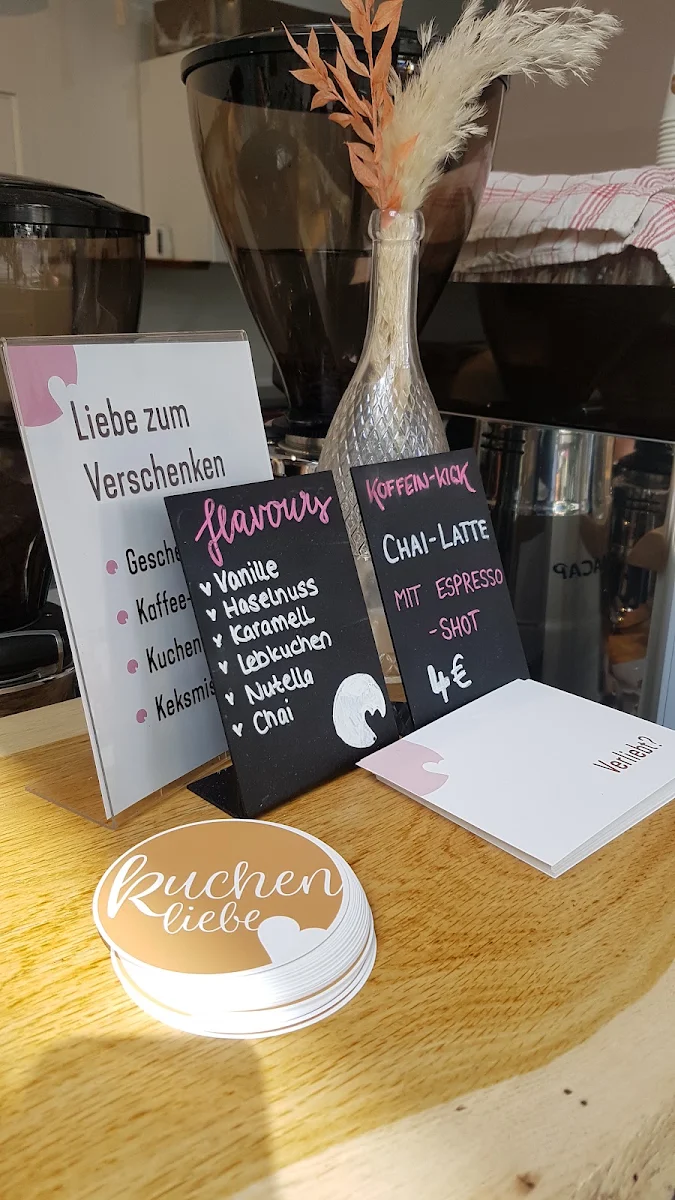 Liebe zum
Verschenken
Kuchen
flavours
Vanille
Haselnuss
Karamell
Lebkuchen
Nutella
Chai
KOFFEIN-KICK
CHAI-LATTE
MIT ESPRESSO
-SHOT
4€
Verliebt?
kuchen
liebe